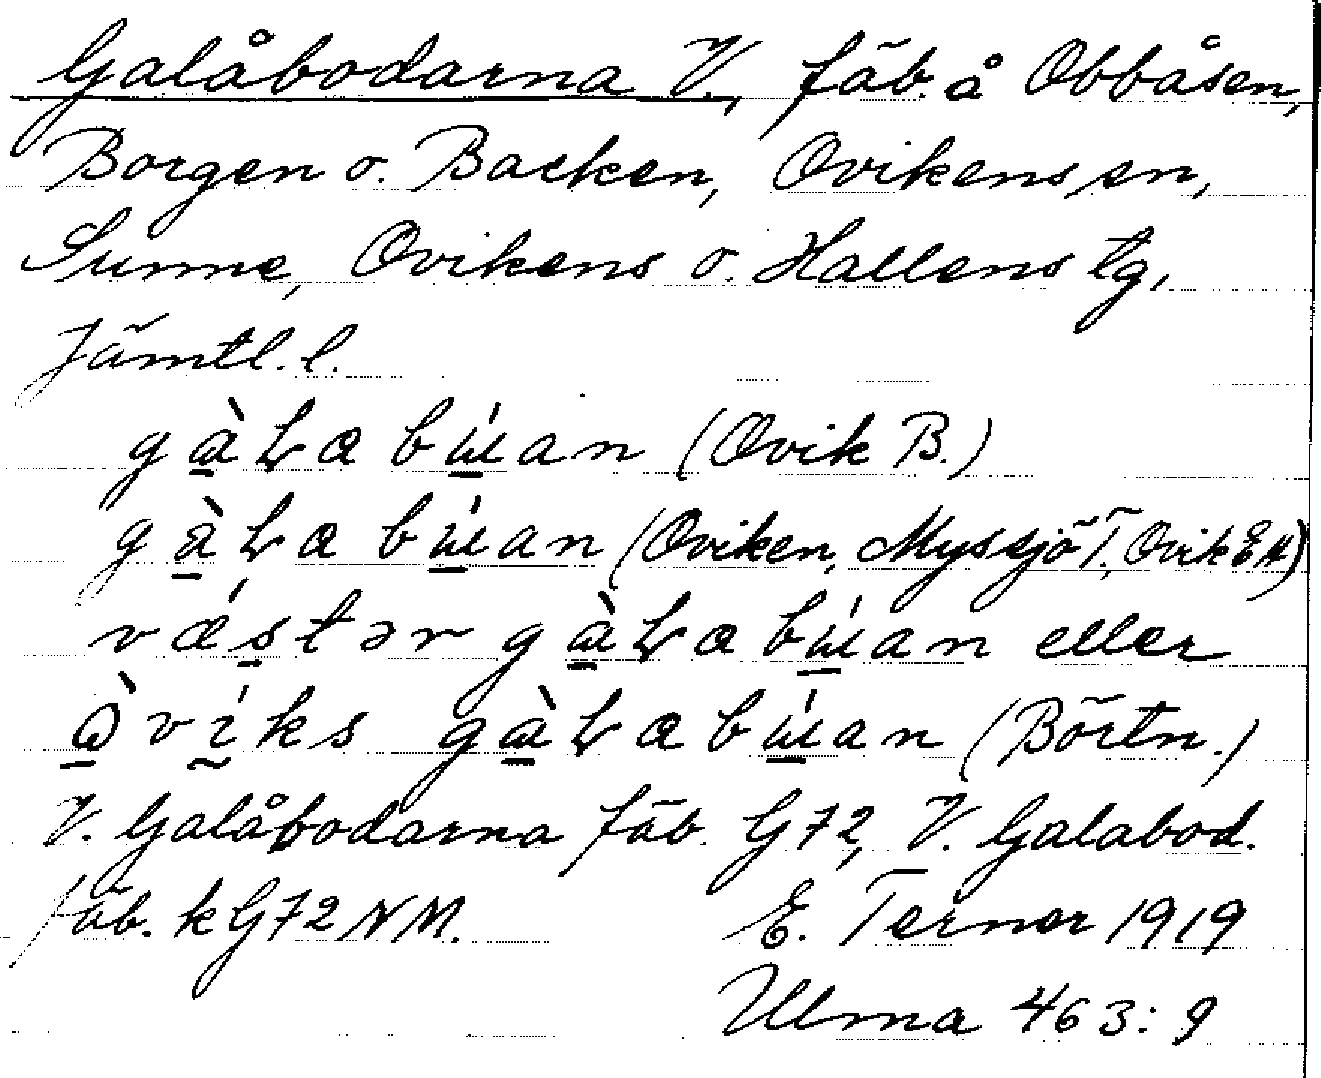 Galåbodarna V., fäb. å Obbåsen,
Borgen o. Backen, Ovikens sn,
Sunne, Ovikens o. Hallens tg,
Jämtl. l.
gàLabɯ́an (Ovik B.)
gàLabɯ́an (Oviken, Myssjö T, Ovik ÅH)
vǽstər gàLabɯ́an eller
òvíks gàLabɯ́an (Börtn.)
V. Galåbodarna fäb. G72, V. Galabod.
fäb. kG72NM. E. Terner 1919
Ulma 463:9